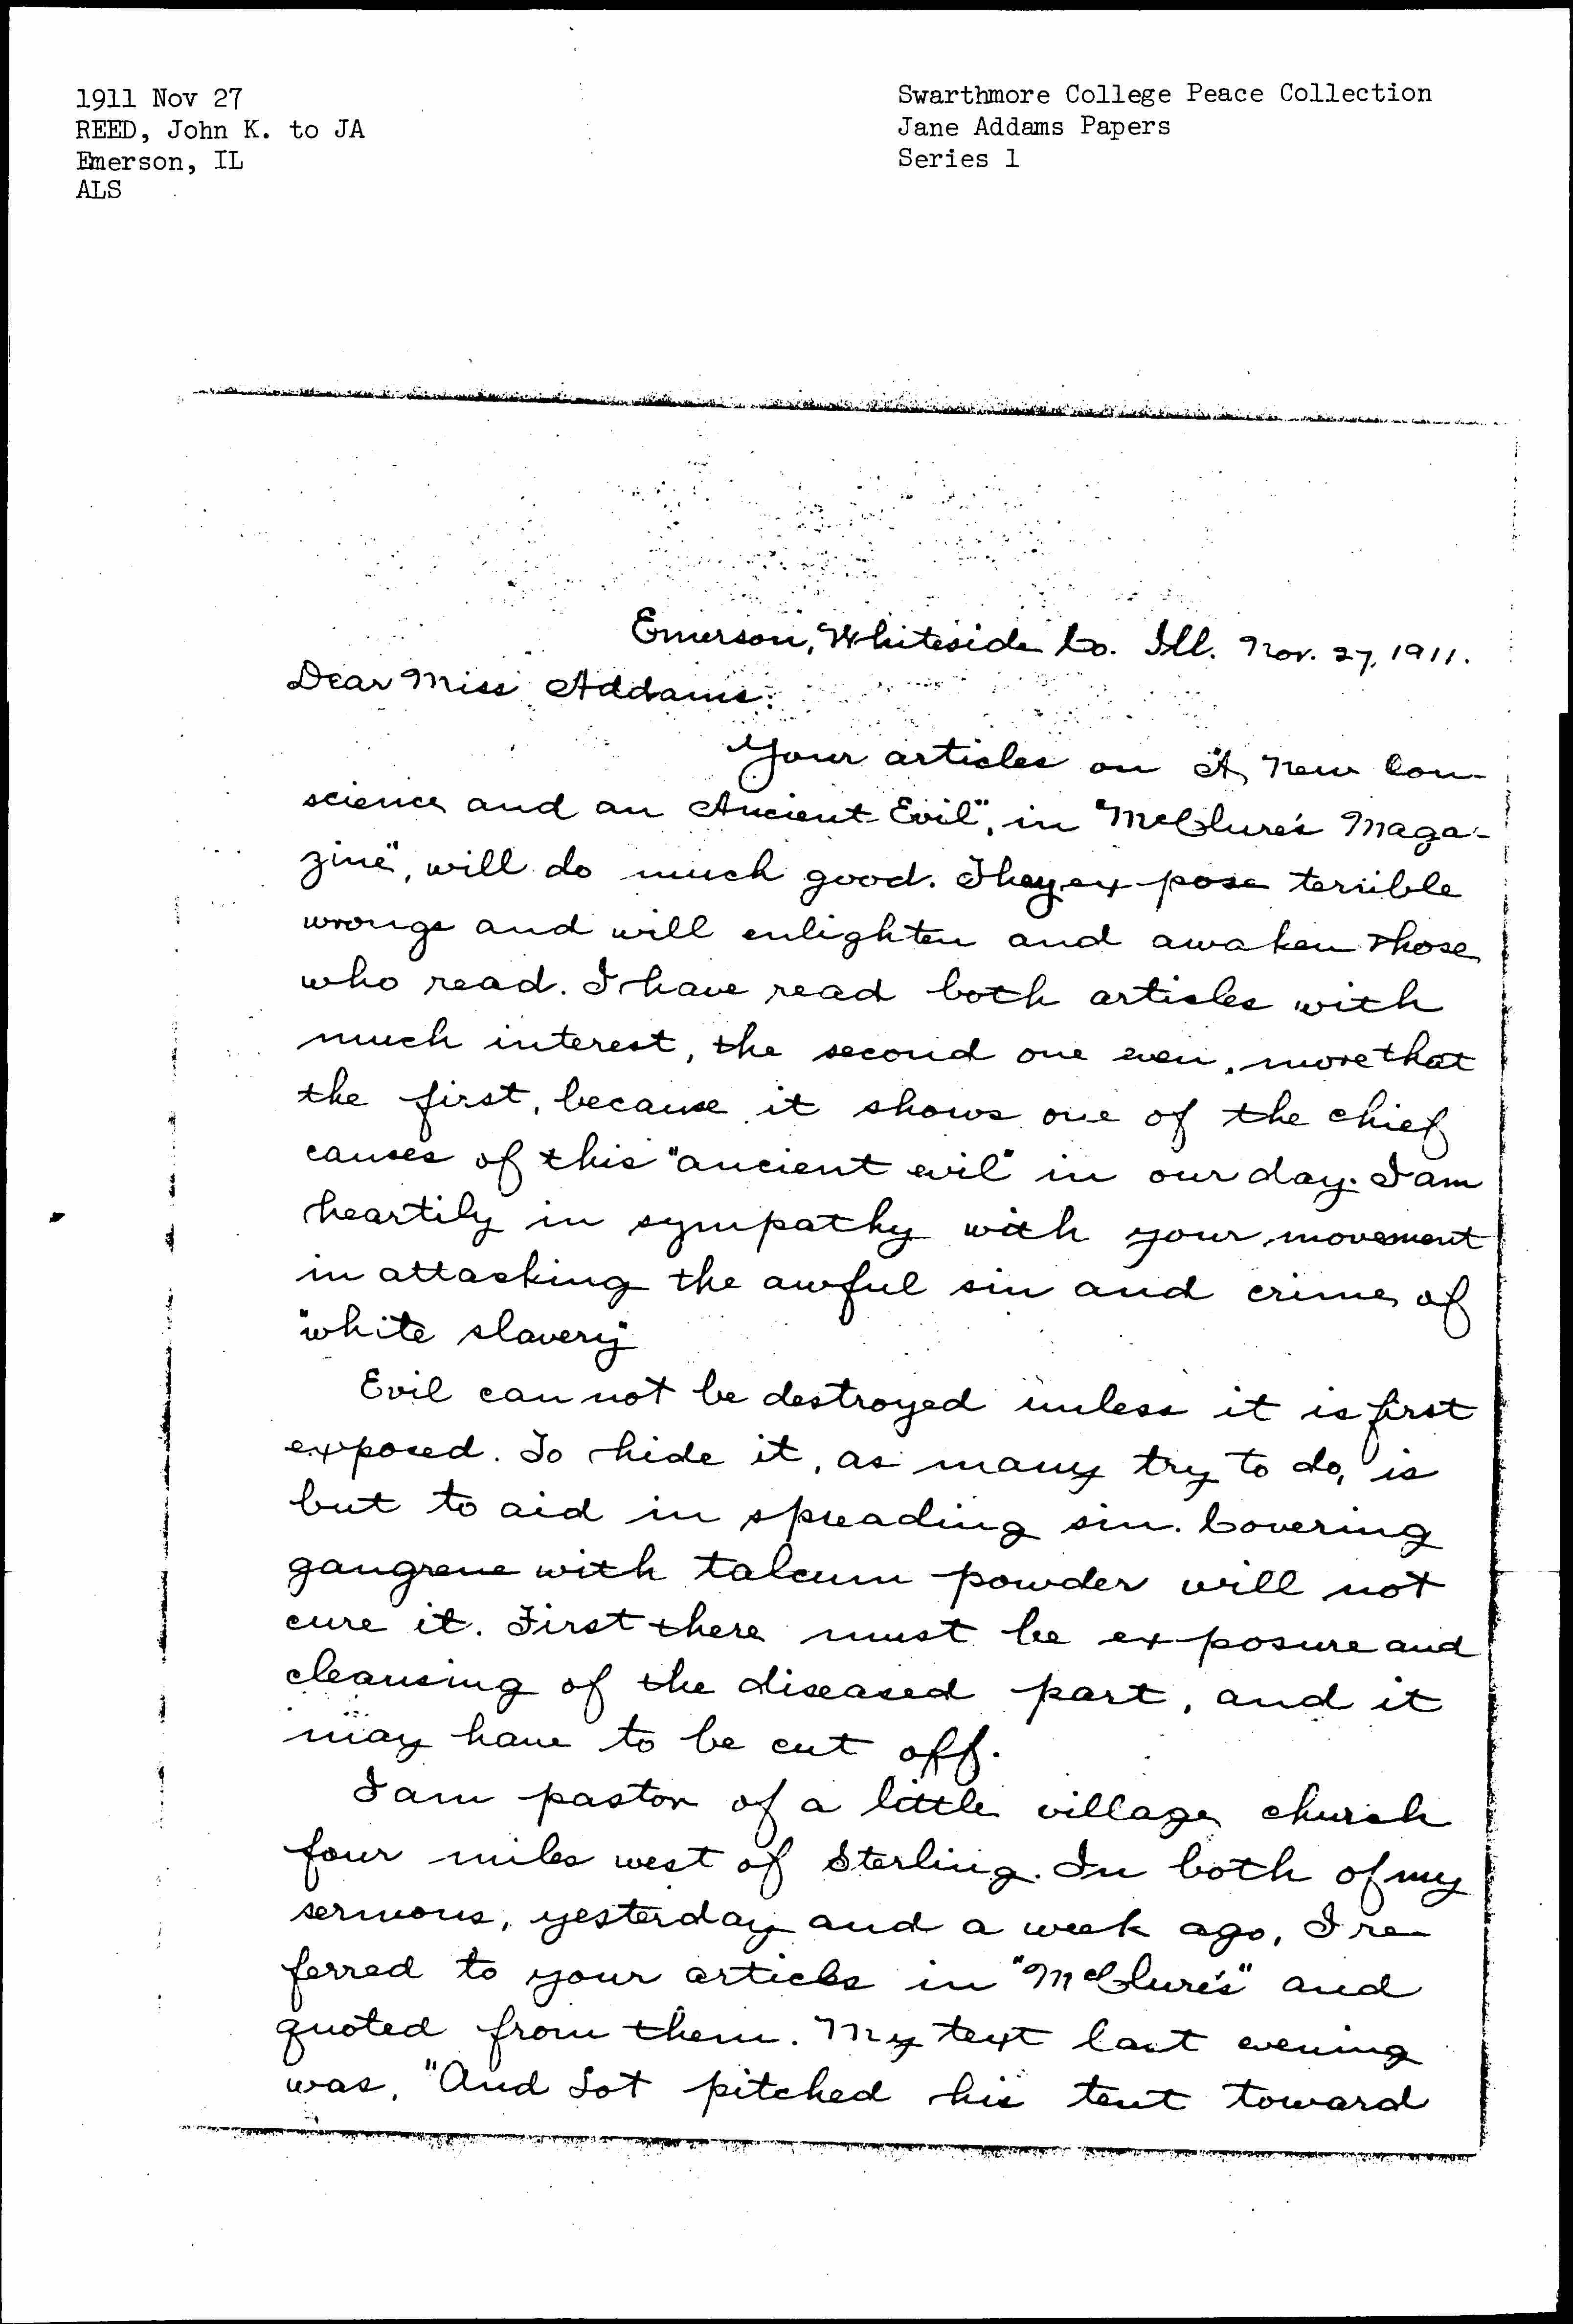 1911 Nov 27
REED, John K. to JA
Emerson, IL
ALS
Swarthmore College Peace Collection
Jane Addams Papers
Series 1
Emerson, Whiteside Co. Ill. Nov. 27, 1911.
Dear Miss Addams:
Your articles on "A New Con-
science and an Ancient Evil", in "McClure's Maga-
zine", will do much good. They expose terrible
wrongs and will enlighten and awaken those
who read. I have read both articles with
much interest, the second one even, more that
the first, because it shows one of the chief
causes of this "ancient evil" in our day. I am
heartily in sympathy with your movement
in attacking the awful sin and crime of
"white slavery"
Evil can not be destroyed unless it is first
exposed. To hide it, as many try to do, is
but to aid in spreading sin. Covering
gangrene with talcum powder will not
cure it. First there must be exposure and
cleansing of the diseased part, and it
may have to be cut off.
I am pastor of a little village church
four miles west of Sterling. In both of my
sermons, yesterday and a week ago, I re-
ferred to your articles in "McClure's" and
quoted from them. My text last evening
was, "And Lot pitched his tent toward